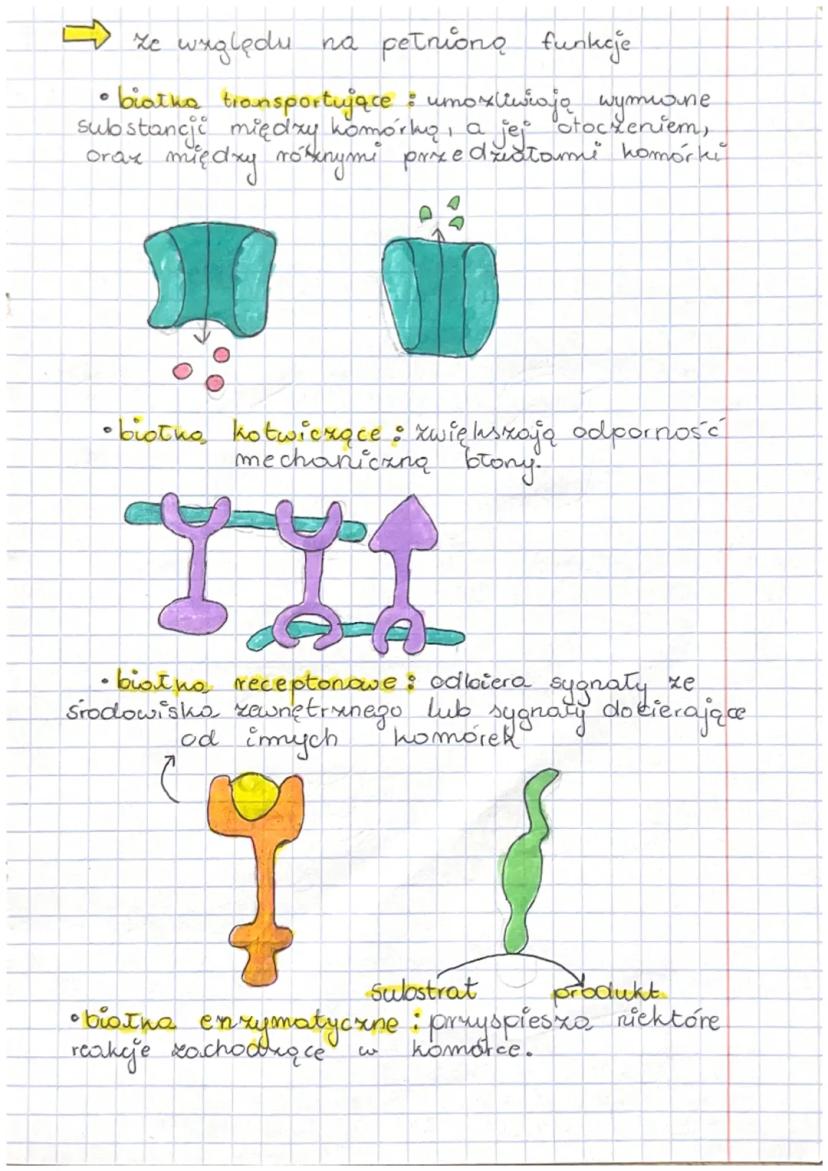 ze względu na pełnioną funkcję
• białka transportujące : umożliwiają wymianę
substancji między komórką, a jej otoczeniem,
oraz między różnymi przedziałami komórki
• białka kotwiczące : zwiększają odporność
mechaniczną błony.
• białka receptorowe : odbiera sygnały ze
środowiska zewnętrznego lub sygnały docierające
od innych komórek
substrat produkt
• białka enzymatyczne : przyspiesza niektóre
reakcje zachodzące w komórce.